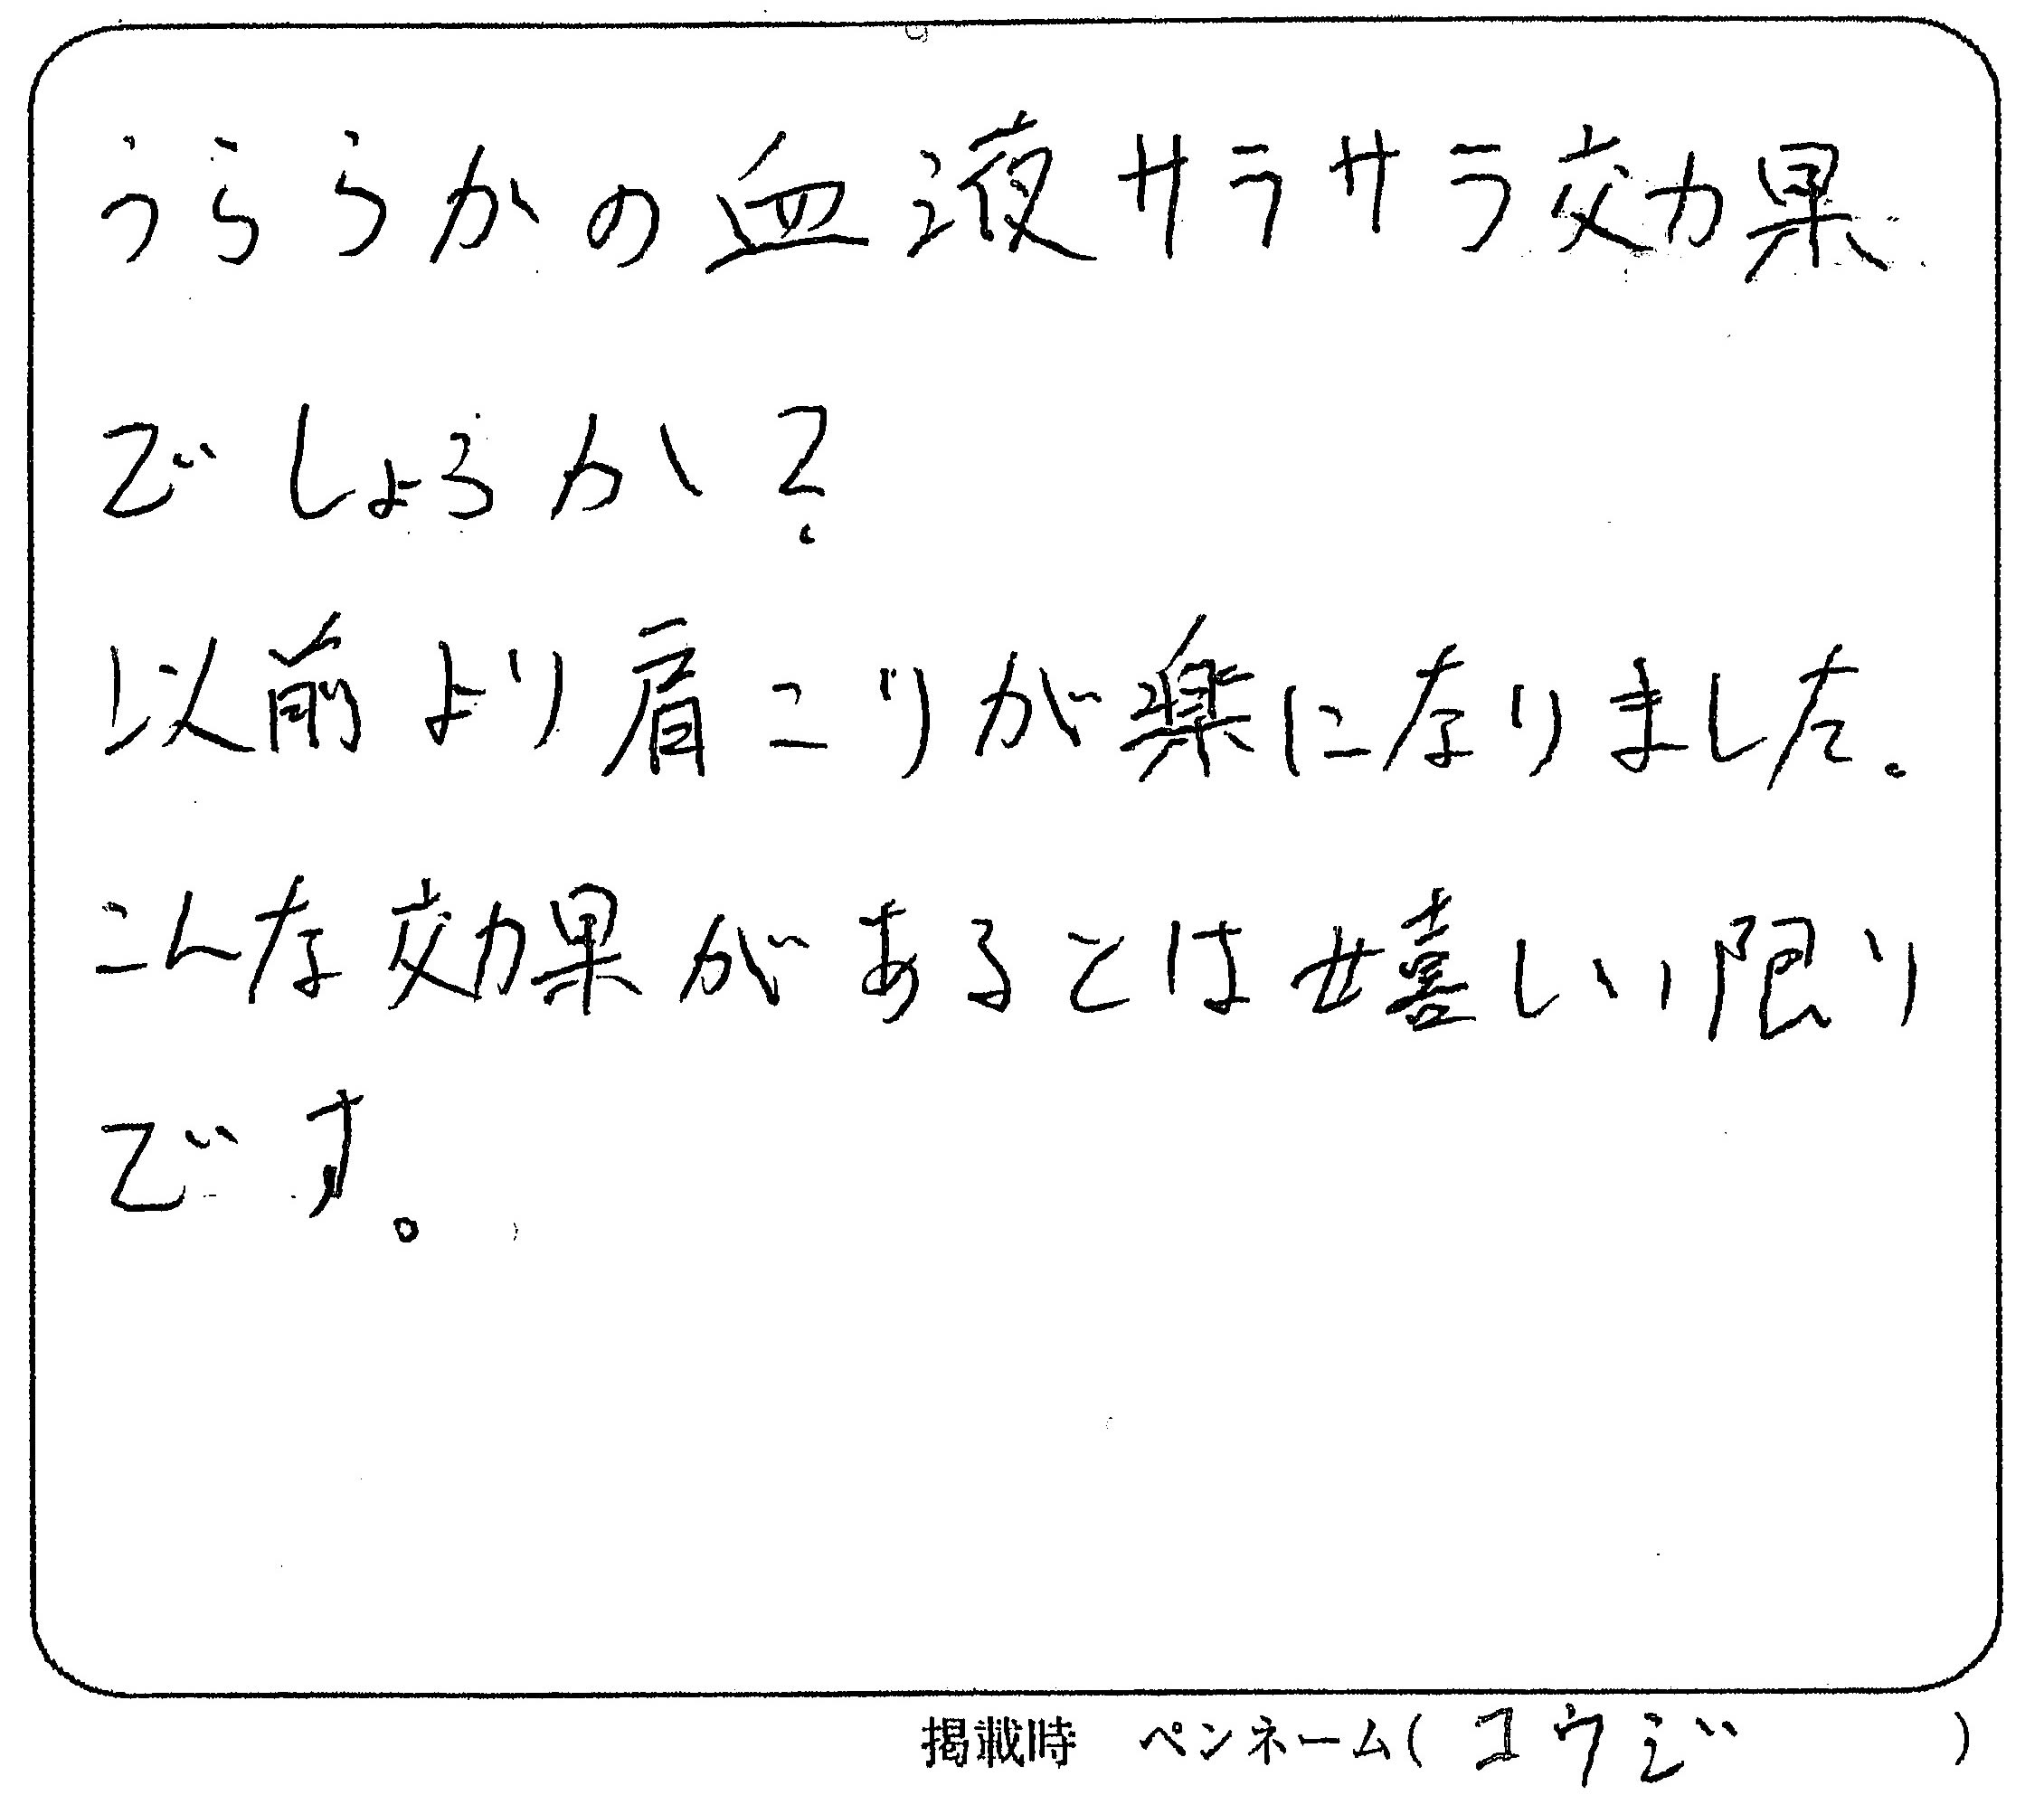 うららかの血液サラサラ効果
でしょうか?
以前より肩こりが楽になりました。
こんな効果があるとは嬉しい限り
です。
掲載時 ペンネーム(コウジ)